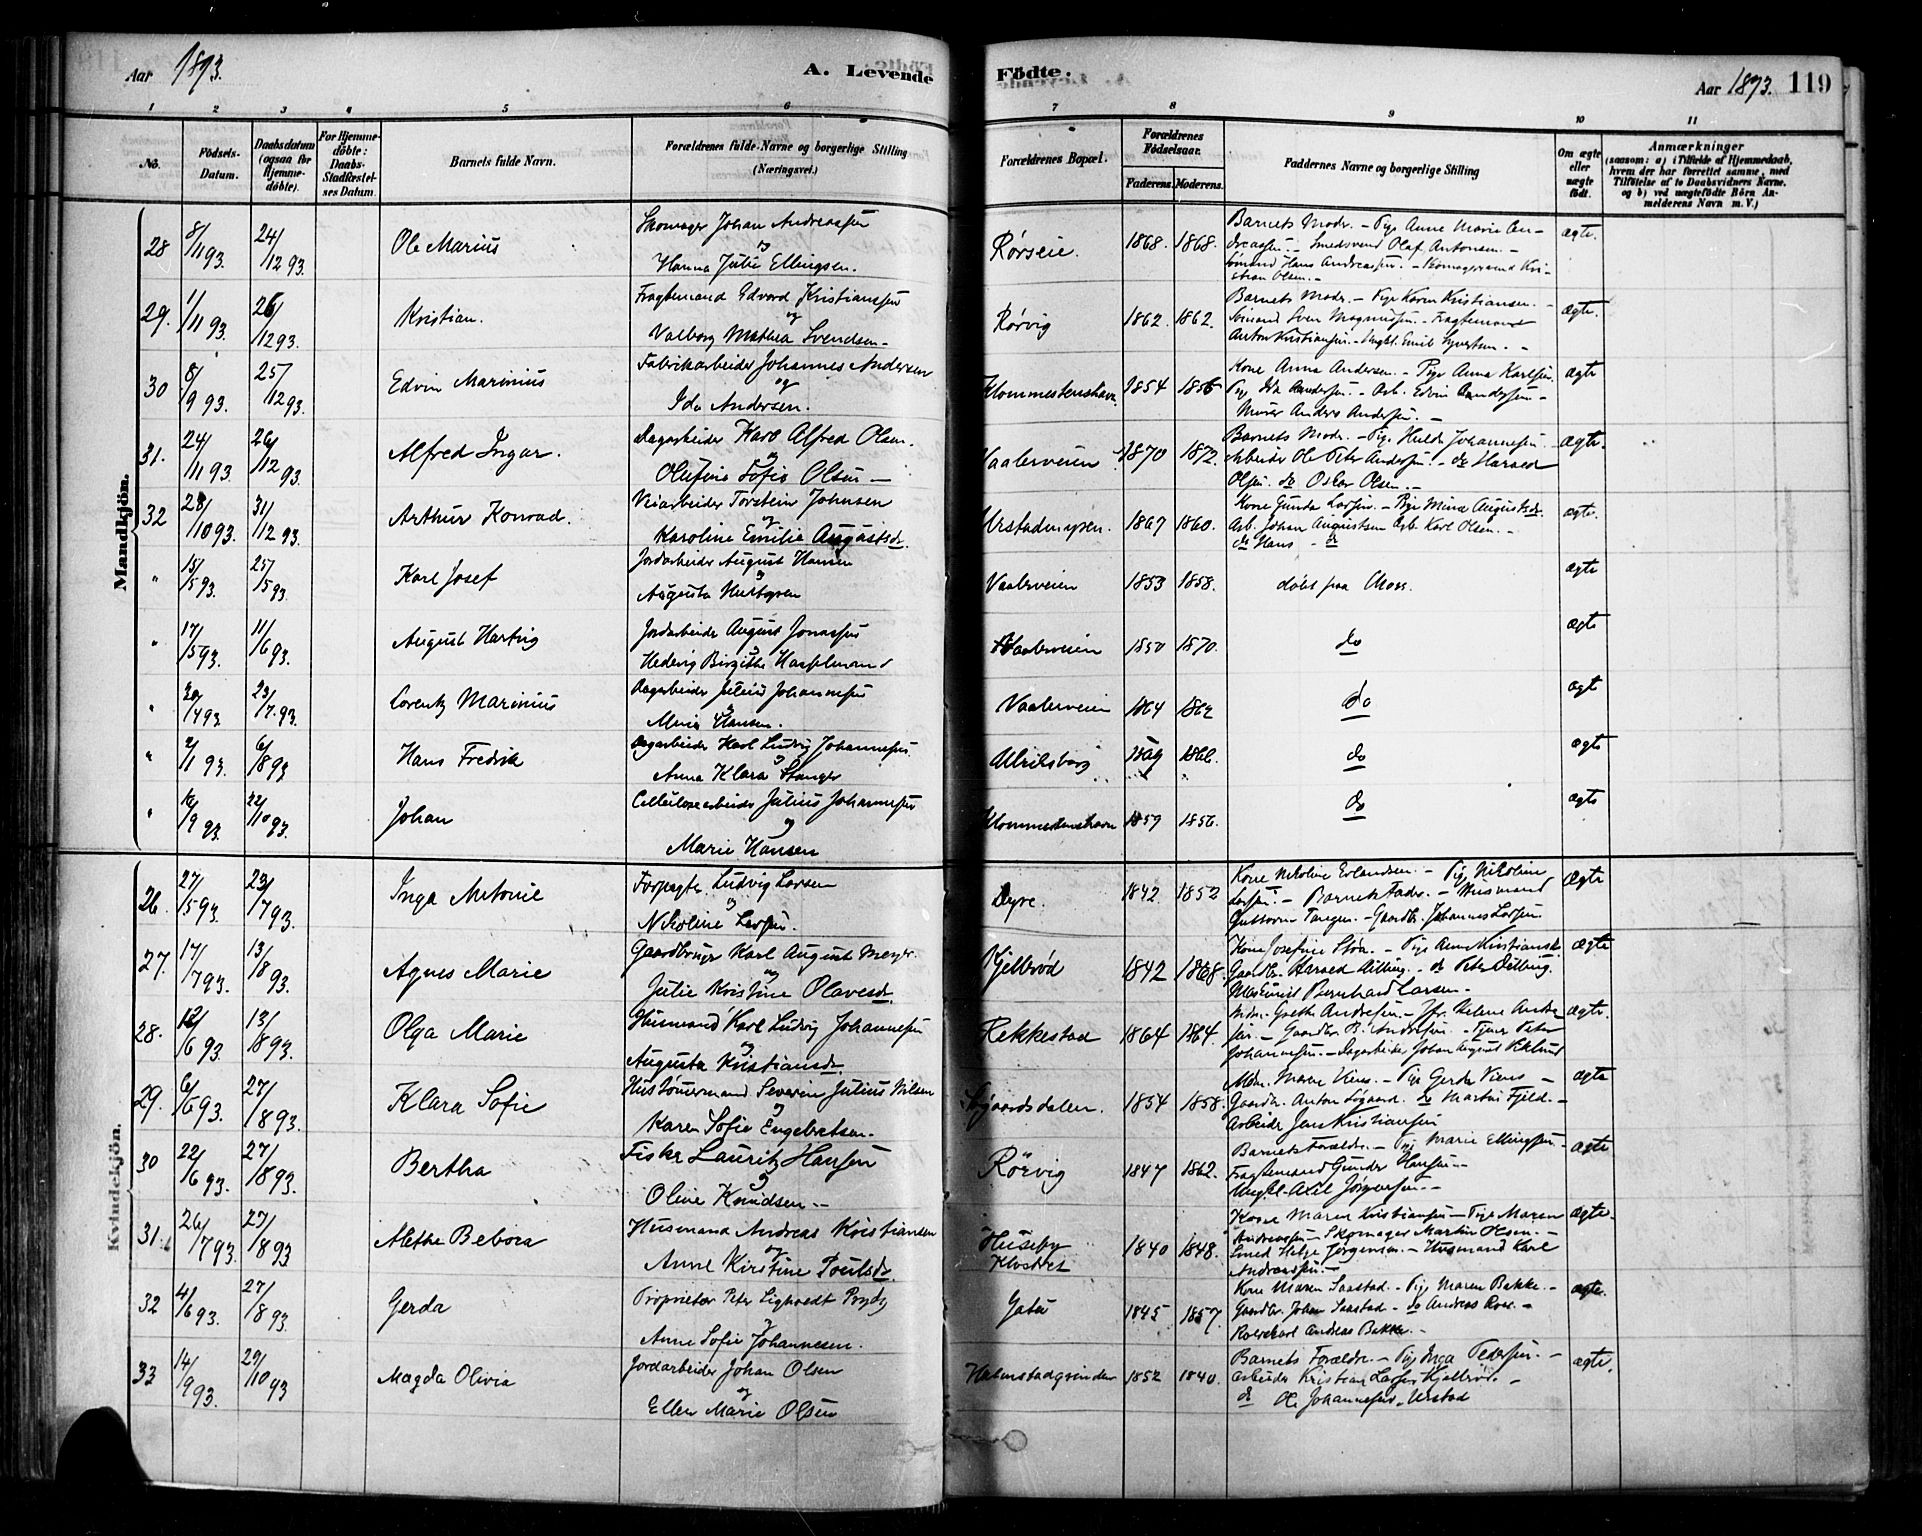 Aar 1893. A. Levende Födte. Aar 1893. 119
1 2 3 4 5 6 7 8 9 10 11
No. Födsels-Datum. Daabsdatum (ogsaa for Hjemme-döbte). For Hjemme-döbte: Daabs-Stadfæstel-ses Datum. Barnets fulde Navn. Forældrenes fulde Navne og borgerlige Stilling (Næringsvei.) Forældrenes Bopæl. Forældrenes Födselsaar. Faderens. Moderens. Faddernes Navne og borgerlige Stilling Om ægte eller uægte födt. Anmærkninger (saasom: a) i Tilfælde af Hjemmedaab, hvem der har forrettet samme, med Tilföielse af to Daabsvidners Navne. og b) ved uægtefödte Börn Anmelderens Navn m. V.)
Mandkjön.
28 8/11 93. 24/12 93. Ole Marius Skomager Johan Andreassen og Hanna Julie Ellingsen. Rörseie. 1868. 1868. Barnets Moder. - Pige Anne Marie Andreassen - Smedsvend Olaf Antonsen. - Sömand Hans Andreassen. - Skomagersvend Kristian Olsen. - ægte.
29. 1/11 93. 26/12 93. Kristian. Fragtemand Edvard Kristianssen og Valborg Mathea Svendsen. Rörvig 1862. 1862. Barnets Moder. - Pige Karen Kristiansen. - Sömand Sven Magnussen. - Fragtemand Anton Kristiansen. - Ungk. Emil Syvertsen. - ægte.
30 8/9 93. 25/12 93. Edvin Marinius Fabrikarbeider Johannes Andersen og Ida Andersen. Klommestenshavn. 1854 1856 Kone Anna Andersen. - Pige Anna Karlsen. Pige Ida Andersen. - Arb. Edvin Andersen - Murer Anders Andersen. - ægte
31. 24/11 93. 26/12 93. Alfred Ingar. Dagarbeider Karl Alfred Olsen. og Olefine Sofie Olsen - Vaalerveien 1870 1872. Barnets Moder. - Pige Hulda Johannesen. Arbeider Ole Peter Andersen. - do Harald Olsen. do Oskar Olsen. - ægte.
32 28/10 93. 31/12 93. Arthur Konrad. Veiarbeider Torstein Johnsen og Karoline Emilie Augustsdr. Urstadmyren. 1867 1860. Kone Gunda Larsen. - Pige Mina Augustsdr. Arb. Johan Augustsen Arb. Karl Olsen. - do Hans - do ægte.
" 15/5 93. 25/5 93. Karl Josef Jordarbeider August Hansen og Augusta Hultgren Vaalerveien 1853 1858. döbt paa Moss. ægte
" 17/5 93. 11/6 93. August Hartvig Jordarbeider August Jonassen og Hedevig Birgitte Hasselmand Vaalerveien 1850 1870. do ægte
" 30/4 93. 23/7. 93. Lorentz Marinius Dagarbeider Julius Johannesen og Maria Hansen. Vaalerveien 1864 1862 do ægt
" 2/1 93. 6/8 93 Hans Fredrik Dagarbeider Karl Ludvig Johannessen. og Anna Klara Stanger Ulriksborg 1866. do ægte
" 12/9 93. 22/10 93. Johan Cellulosearbeider Julius Johannessen og Marie Hansen Klommestenshavn 1859 1856. do ægte
Kvindekjön.
26. 27/5 93. 23/7 93. Inga Antonie Forpagter Ludvig Larsen og Nikoline Larsen. Dyre. 1842. 1852 Kone Nikoline Erlandsen. - Pige Nikoline Larsen. - Barnets Fader. - Husmand Guttorm Tangen. - Gaardbr. Johannes Larsen ægte
27. 17/7 93. 13/8 93. Agnes Marie Gaardbruger Karl August Meyer. og Julie Kristine Olavesdr. Kjellröd 1842 1868. Kone Josefine Stöa. - Pige Anne Kristiansdr. Gaardbr. Harald Dilling. - do Peter Dilling. Maskinist Bernhard Larsen. - ægte
28. 12/6 93. 13/8 93. Olga Marie Husmand Karl Ludvig Johannessen og Augusta Kristiansdr. Rekkestad 1864 1864. Mdm. Grethe Andresen. - Jfr. Helene Andresen. - Gaardbr. B. Andresen. - Tjener Peter Johannessen. - Dagarbeider Johan August Viklund ægte.
29. 6/6 93. 27/8 93. Klara Sofie Hustömmermand Severin Julius Nilsen og Karen Sofie Engebretsen. Sögaardsdalen. 1854 1858. Mdm. Maren Viens. - Pige Gerda Viens - Gaardbr. Anton Sögaard. do Martin Fjeld - Arbeider Jens Kristiansen ægte
30 22/6 93. 27/8 93. Bertha Fisker Lauritz Hansen og Oline Knudsen. - Rörvig 1847 1862. Barnets Forældre. - Pige Marie Ellingsen. - Fragtemand Gunder Hansen. - Ungk. Axel Jörgensen. - ægte
31. 26/7 93. 27/8 93 Alethe Bebora Husmand Andreas Kristiansen og Anne Kirstine Poulsdr. Huseby Klostret 1840 1848. Kone Maren Kristiansen - Pige Maren Andreassen - Skomager Martin Olsen. - Smed Helge Jörgensen. - Husmand Karl Andreassen. - ægte.
32 4/6 93. 27/8 93. Gerda Proprietær Peter Lighvedt Prydz og Anne Sofie Johannesen. Gatu 1845 1857. Kone Maren Saastad. - Pige Maren Bakke. - Gaardbr. Johan Saastad. - do Andreas Roer. - Roerskarl Andreas Bakke. - ægte.
33 14/9 93. 29/10 93 Magda Olivia Jordarbeider Johan Olsen og Ellen Marie Olsen Halmstadgrinden 1852 1840. Barnets Forældre. - Pige Inga Petersen. - Arbeider Kristian Larsen Kjellröd. - do Ole Johannessen. Urstad ægte.